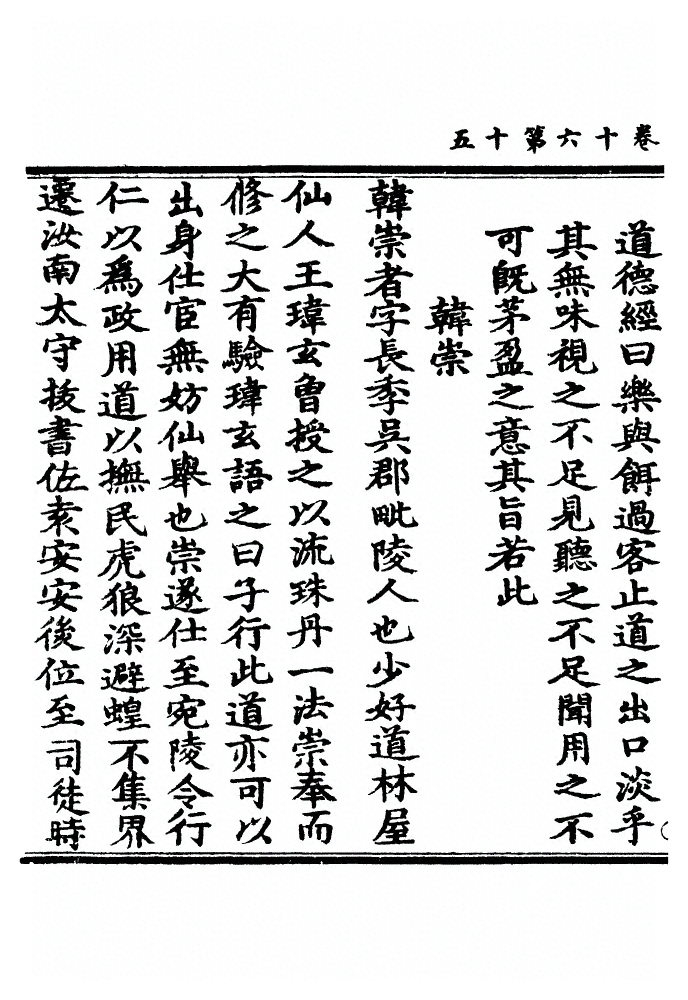 卷十六第十五
道德經曰樂與餌過客止道之出口淡乎
其無味視之不足見聽之不足聞用之不
可旣茅盈之意其旨若此
韓崇
韓崇者字長季吳郡毗陵人也少好道林屋
仙人王瑋玄曾授之以流珠丹一法崇奉而
修之大有驗瑋玄語之曰子行此道亦可以
出身仕宦無妨仙舉也崇遂仕至宛陵令行
仁以爲政用道以撫民虎狼深避蝗不集界
遷汝南太守拔書佐袁安安後位至司徒時